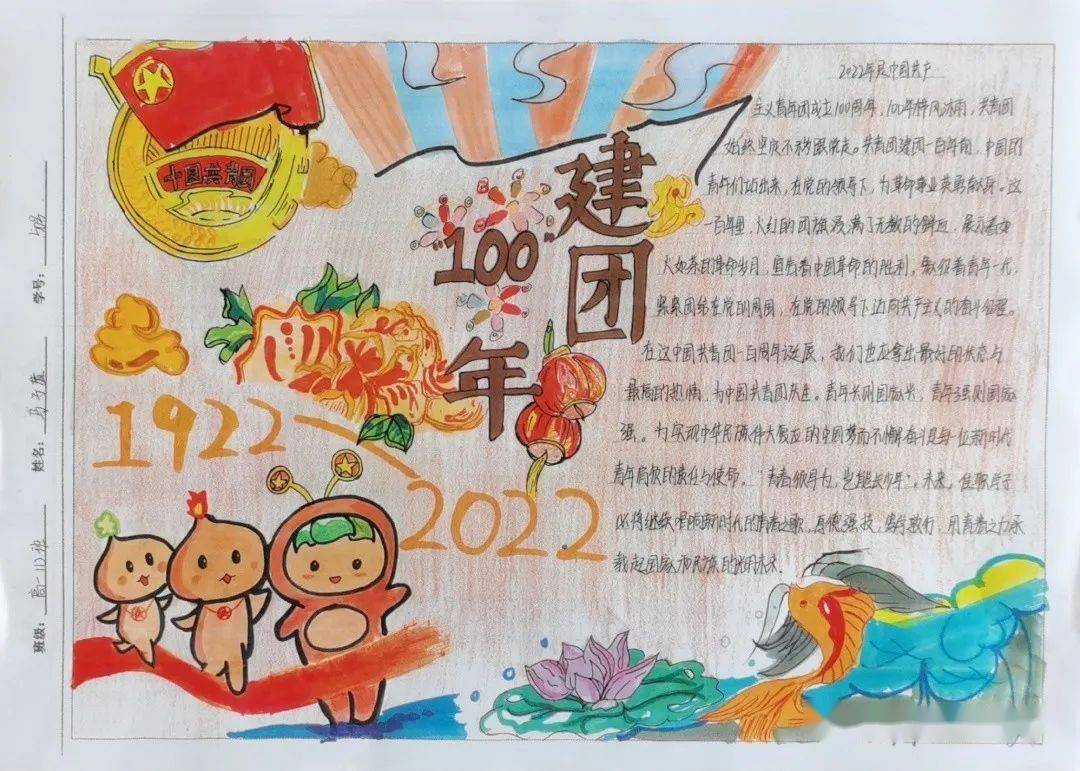 中国共青团
建团
"100"
年
1922—
2022
2022年是中国共产
主义青年团成立100周年,100年栉风沐雨,共青团
始终坚定不移跟党走。共青团建团一百年前,中国的
青年们站出来,在党的领导下,为革命事业英勇献身。这
一百年里,火红的团旗浸满了无数的鲜血,展示着如
火如荼的革命岁月,宣告着中国革命的胜利,象征着青年一代,
紧紧团结在党的周围,在党的领导下迈向共产主义的奋斗征程。
在这中国共青团一百周年诞辰,我们也应拿出最好的状态与
最高的热情,为中国共青团庆生。青年兴则团旗兴,青年强则国家
强。为实现中华民族伟大复兴的中国梦而不懈奋斗是每一位新时代
青年肩负的责任与使命。"青春须早为,岂能长少年"。未来,
必将继续唱响新时代的青春之歌,厚德强技,笃学敦行,用青春之力承
载起国家和民族的光明未来.
班级:高一(1)班
姓名:马
学号: